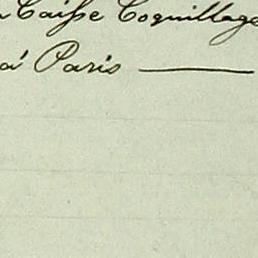 Caisse Coquillage
à Paris —